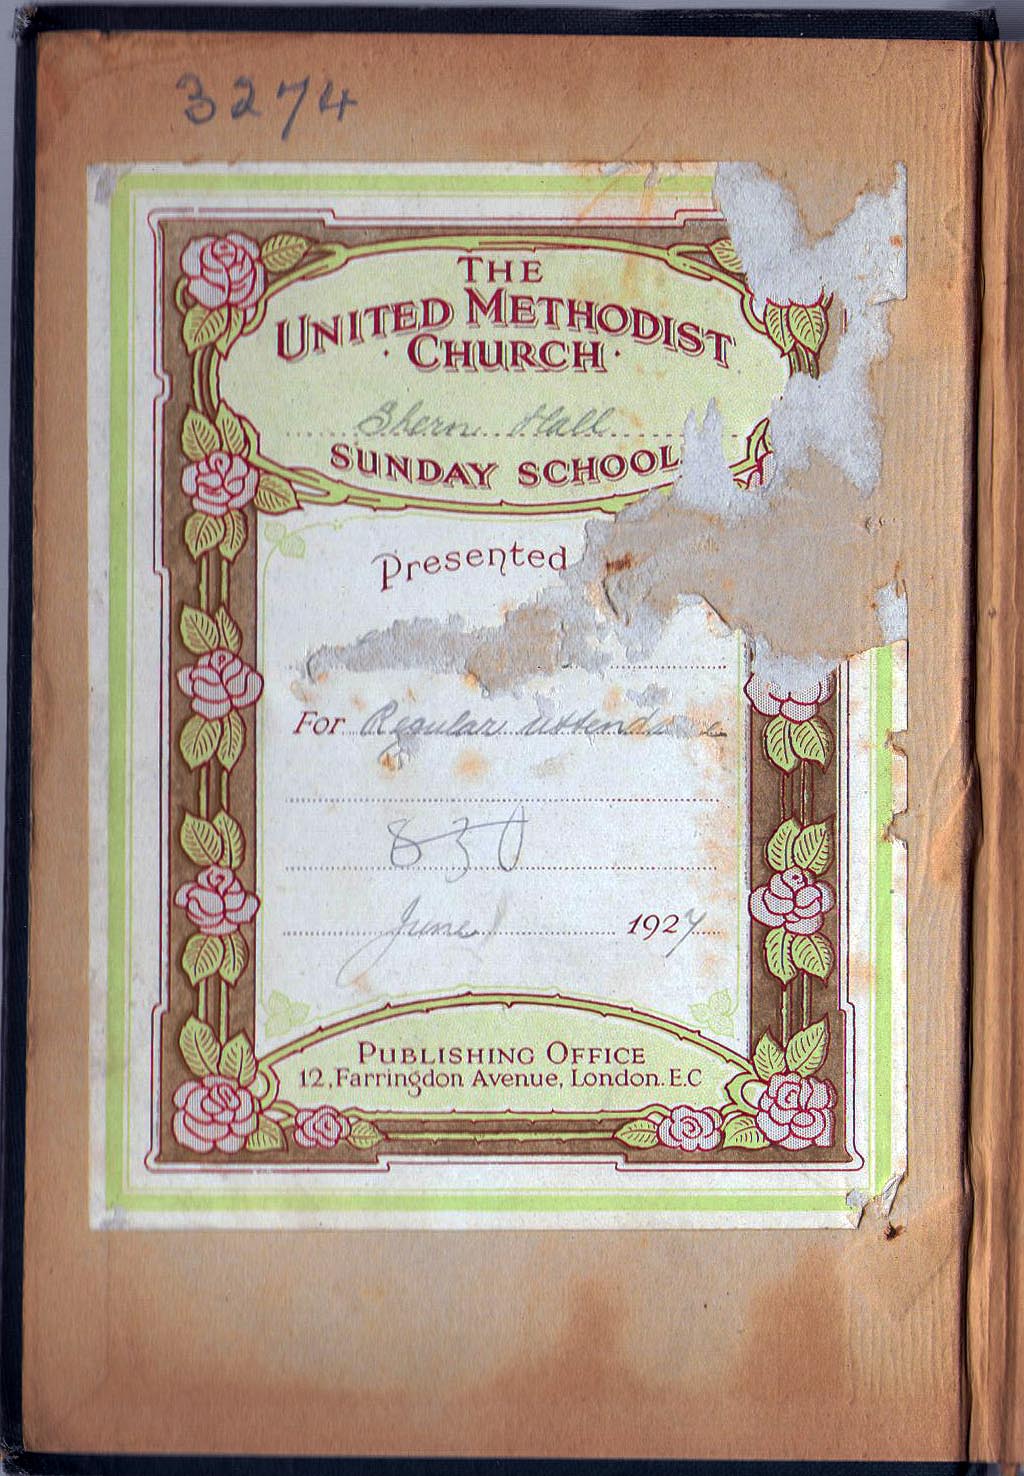 3274
THE
UNITED METHODIST
· CHURCH ·
Shern Hall
SUNDAY SCHOOL
Presented
For Regular attendance
830
June 1927
PUBLISHING OFFICE
12, Farringdon Avenue, London. E.C